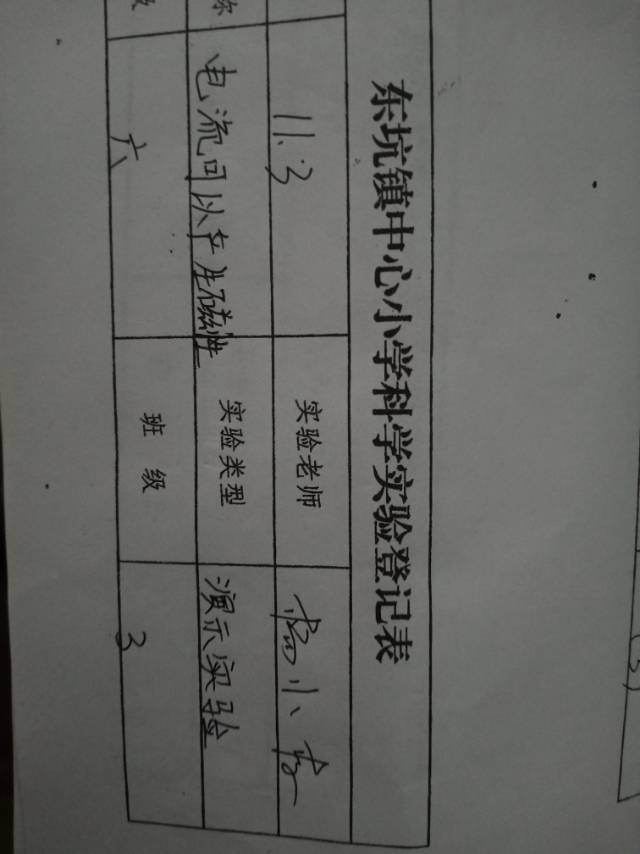 东坑镇中心小学科学实验登记表
11.3 实验老师
电流可以产生磁性 实验类型 演示实验
六 班 级 3